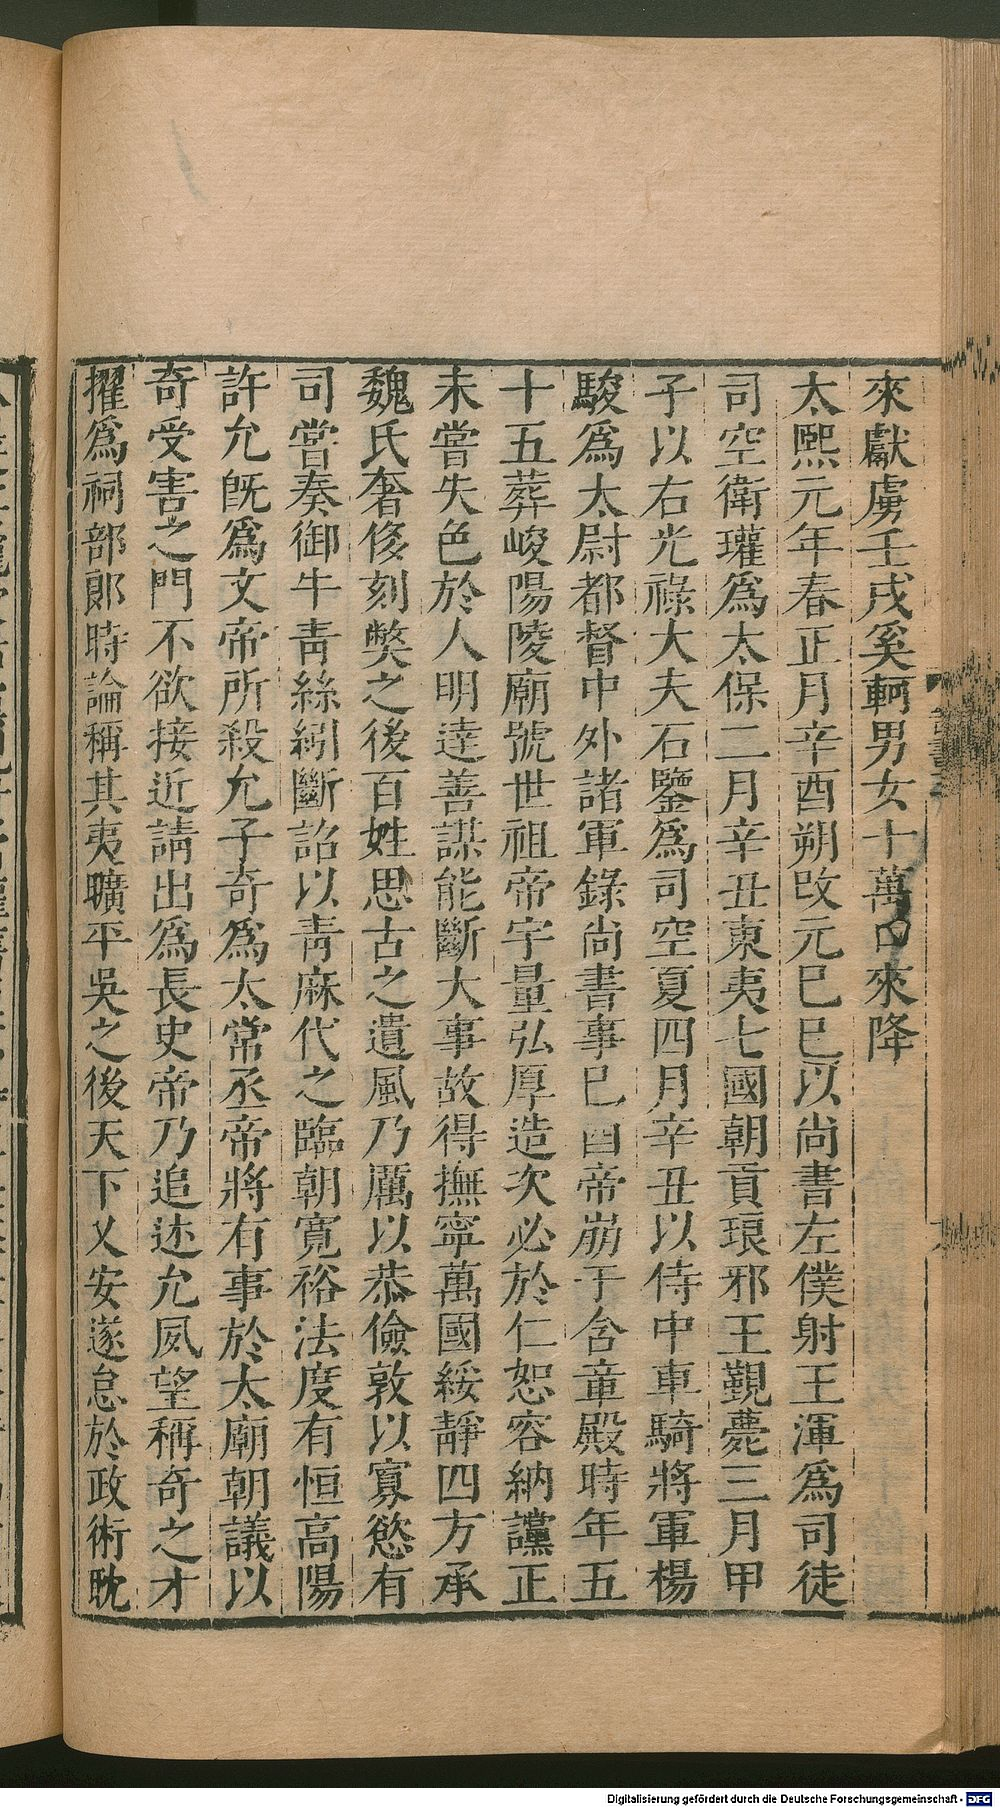 來獻虜壬戌奚軻男女十萬口來降
太熙元年春正月辛酉朔改元己巳以尚書左僕射王渾為司徒
司空衛瓘為太保二月辛丑東夷七國朝貢琅邪王覲薨三月甲
子以右光祿大夫石鑒為司空夏四月辛丑以侍中車騎將軍楊
駿為太尉都督中外諸軍錄尚書事己酉帝崩于含章殿時年五
十五葬峻陽陵廟號世祖帝宇量弘厚造次必於仁恕容納讜正
未嘗失色於人明達善謀能斷大事故得撫寧萬國綏靜四方承
魏氏奢侈刻弊之後百姓思古之遺風乃厲以恭儉敦以寡慾有
司嘗奏御牛青絲紖斷詔以青麻代之臨朝寬裕法度有恒高陽
許允旣為文帝所殺允子奇為太常丞帝將有事於太廟朝議以
奇受害之門不欲接近請出為長史帝乃追述允夙望稱奇之才
擢為祠部郞時論稱其夷曠平吳之後天下乂安遂怠於政術耽
Digitalisierung gefördert durch die Deutsche Forschungsgemeinschaft - DFG